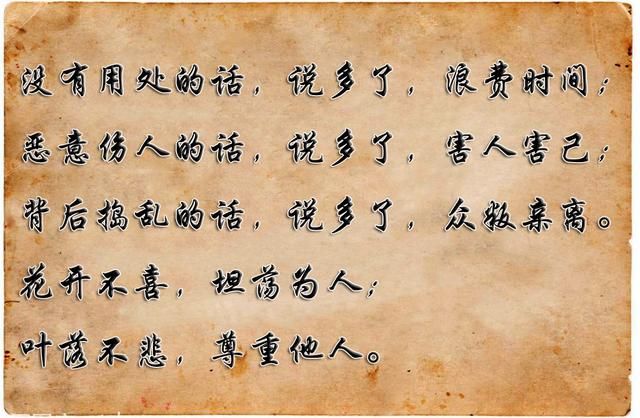 没有用处的话，说多了，浪费时间；
恶意伤人的话，说多了，害人害己；
背后捣乱的话，说多了，众叛亲离。
花开不喜，坦荡为人；
叶落不悲，尊重他人。